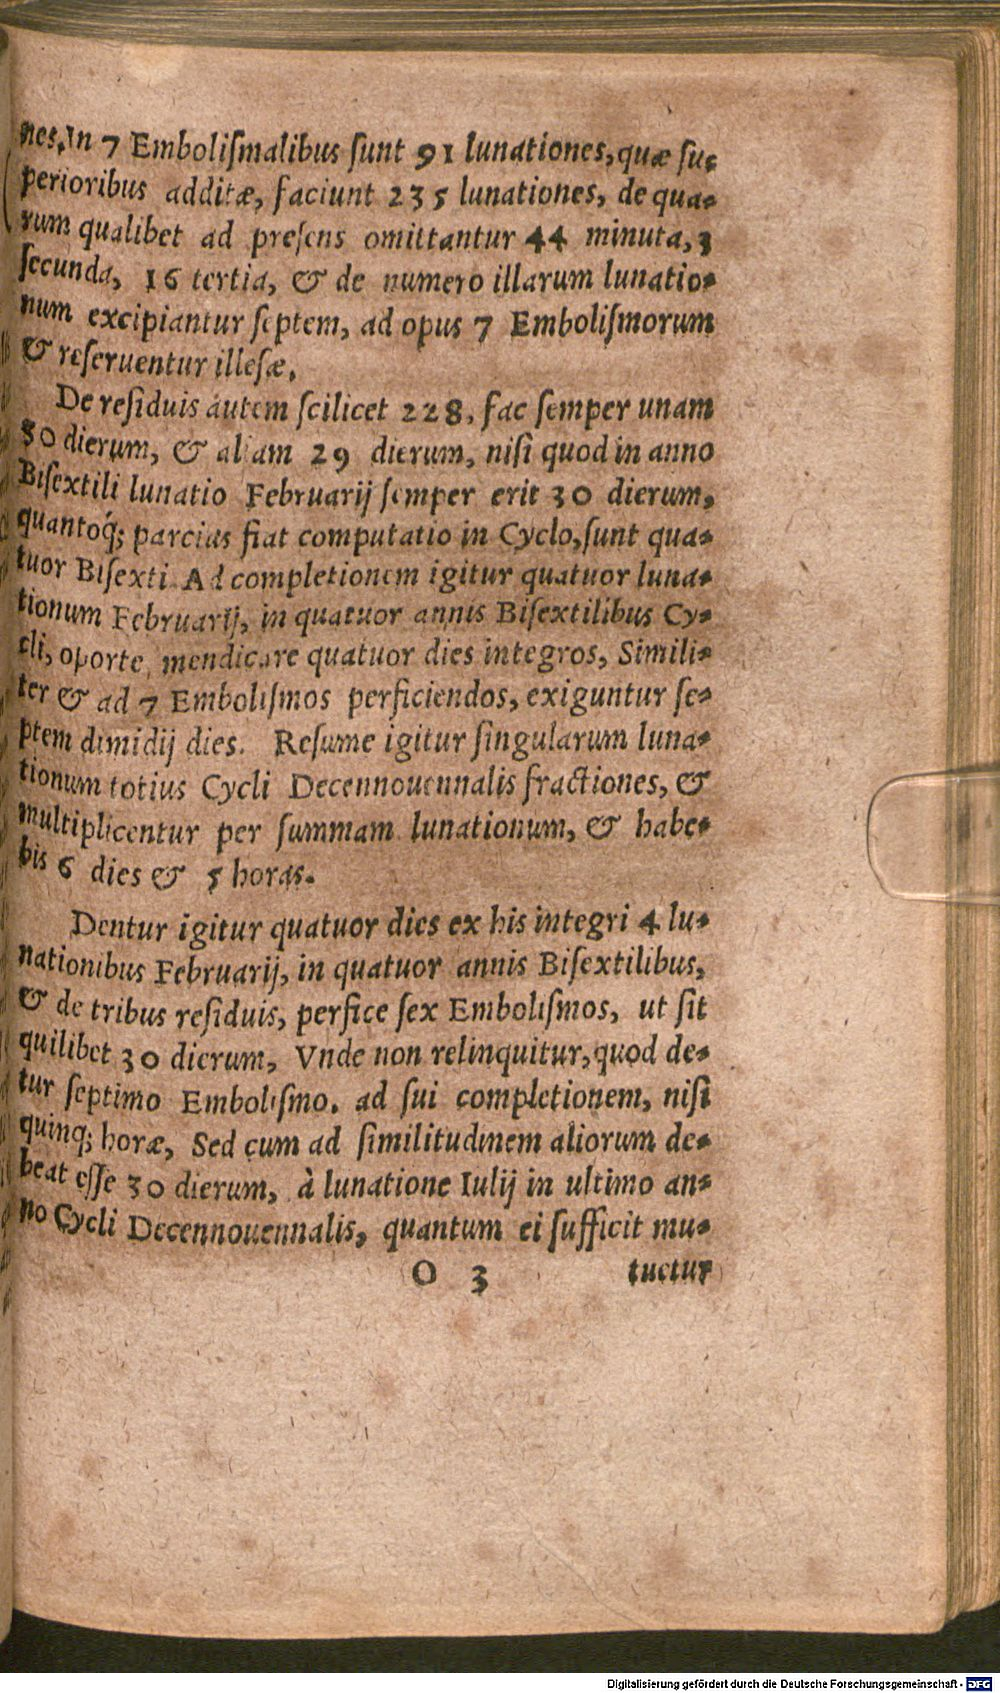 nes, In 7 Emboliſmalibus ſunt 91 lunationes, quæ ſu-
perioribus additæ, faciunt 235 lunationes, de qua-
rum qualibet ad preſens omittantur 44 minuta, 3
ſecunda, 16 tertia, & de numero illarum lunatio-
num excipiantur ſeptem, ad opus 7 Emboliſmorum
& reſeruentur illeſæ.
De reſiduis autem ſcilicet 228, fac ſemper unam
30 dierum, & aliam 29 dierum, niſi quod in anno
Biſextili lunatio Februarij ſemper erit 30 dierum,
quantoq́; parcius fiat computatio in Cyclo, ſunt qua-
tuor Biſexti. Ad completionem igitur quatuor luna-
tionum Februarij, in quatuor annis Biſextilibus Cy-
cli, oporte mendicare quatuor dies integros, Simili-
ter & ad 7 Emboliſmos perficiendos, exiguntur ſe-
ptem dimidij dies. Reſume igitur ſingularum luna-
tionum totius Cycli Decennouennalis fractiones, &
multiplicentur per ſummam lunationum, & habe-
bis 6 dies & 5 horas.
Dentur igitur quatuor dies ex his integri 4 lu-
nationibus Februarij, in quatuor annis Biſextilibus,
& de tribus reſiduis, perfice ſex Emboliſmos, ut ſit
quilibet 30 dierum, Vnde non relinquitur, quod de-
tur ſeptimo Emboliſmo. ad ſui completionem, niſi
quinq; horæ, Sed cum ad ſimilitudinem aliorum de-
beat eſſe 30 dierum, à lunatione Iulij in ultimo an-
no Cycli Decennouennalis, quantum ei ſufficit mu-
O 3 tuetur
Digitalisierung gefördert durch die Deutsche Forschungsgemeinschaft - DFG